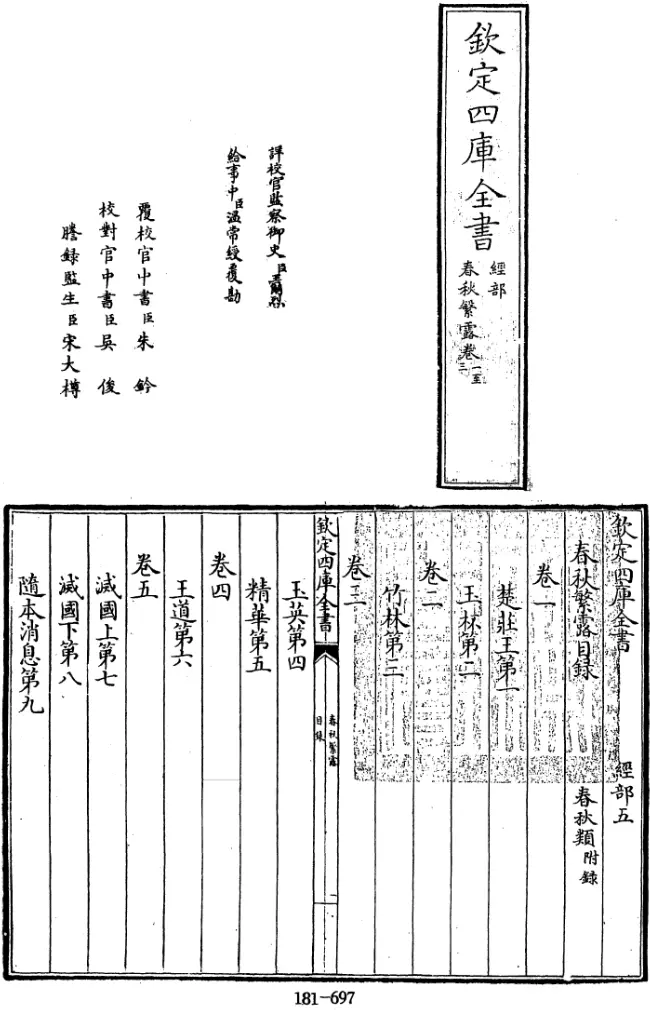 欽定四庫全書
經部
春秋繁露卷一至三
詳校官監察御史臣蕭際韶
給事中臣溫常綬覆勘
覆校官中書臣朱鈐
校對官中書臣吳俊
謄錄監生臣宋大樽
欽定四庫全書 經部五
春秋繁露目錄 春秋類附錄
卷一
楚莊王第一
玉杯第二
卷二
竹林第三
卷三
欽定四庫全書
春秋繁露
目錄
一
玉英第四
精華第五
卷四
王道第六
卷五
滅國上第七
滅國下第八
隨本消息第九
181-697